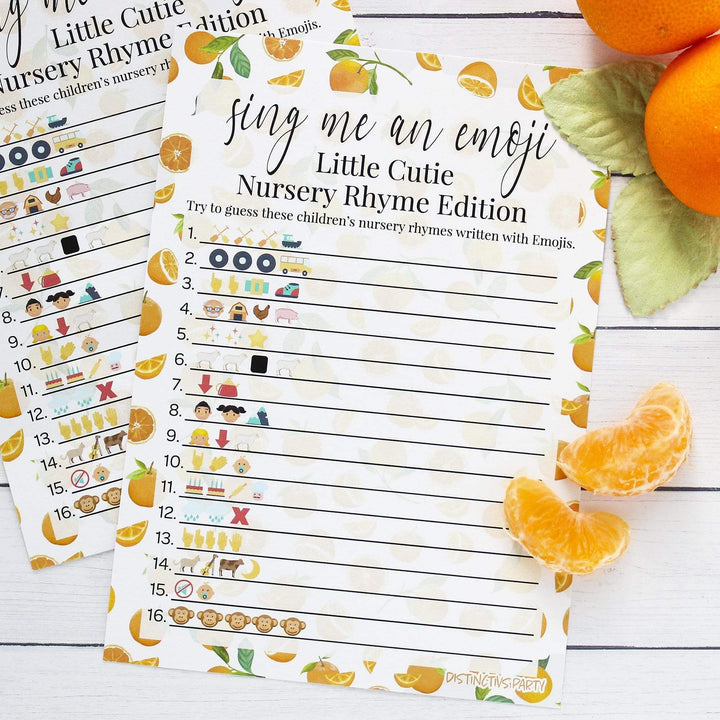 sing me an emoji
Little Cutie
Nursery Rhyme Edition
Guess these children's nursery rhymes written with Emojis.
7.
8.
9.
10.
11.
12.
13.
14.
15.
16.
sing me an emoji
Little Cutie
Nursery Rhyme Edition
Try to guess these children's nursery rhymes written with Emojis.
1.
2.
3.
4.
5.
6.
7.
8.
9.
10.
11.
12.
13.
14.
15.
16.
DISTINCTIVS PARTY